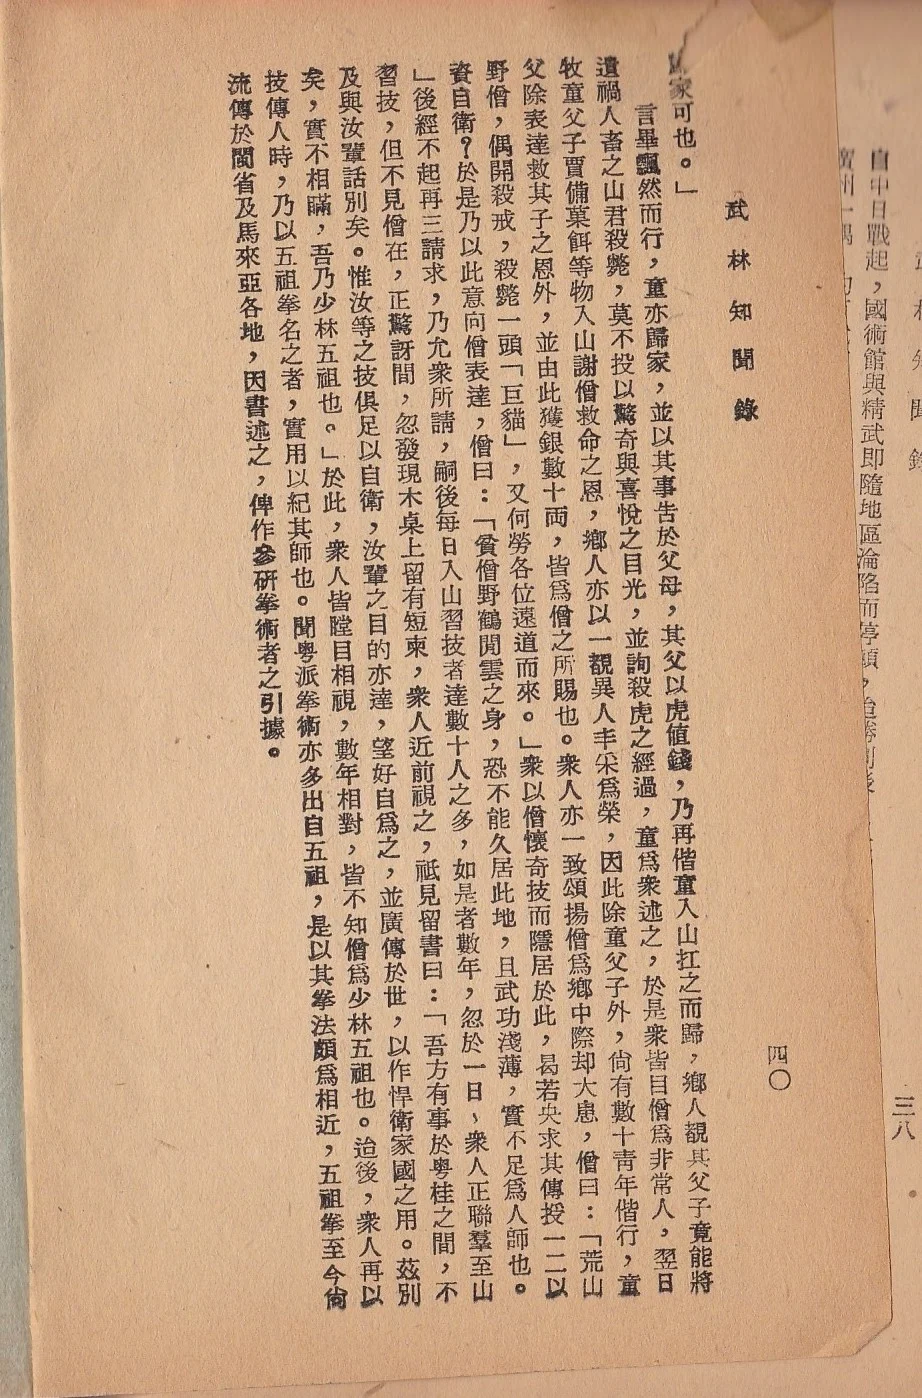 武林知聞錄
三八
自中日戰起，國術館與精武即隨地區淪陷而停頓，迨勝利後
廣州一隅
武林知聞錄
四〇
家可也。」
言畢飄然而行，童亦歸家，並以其事告於父母，其父以虎值錢，乃再偕童入山扛之而歸，鄉人覩其父子竟能將
遺禍人畜之山君殺斃，莫不投以驚奇與喜悅之目光，並詢殺虎之經過，童爲衆述之，於是衆皆目僧爲非常人，翌日
牧童父子賈備菓餌等物入山謝僧救命之恩，鄉人亦以一覩異人丰采爲榮，因此除童父子外，尙有數十靑年偕行，童
父除表達救其子之恩外，並由此獲銀數十両，皆爲僧之所賜也。衆人亦一致頌揚僧爲鄉中際却大患，僧曰：「荒山
野僧，偶開殺戒，殺斃一頭「巨貓」，又何勞各位遠道而來。」衆以僧懷奇技而隱居於此，曷若央求其傳授一二以
資自衛？於是乃以此意向僧表達，僧曰：「貧僧野鶴閒雲之身，恐不能久居此地，且武功淺薄，實不足爲人師也。
」後經不起再三請求，乃允衆所請，嗣後每日入山習技者達數十人之多，如是者數年，忽於一日、衆人正聯羣至山
習技，但不見僧在，正驚訝間，忽發現木桌上留有短柬，衆人近前視之，祇見留書曰：「吾方有事於粵桂之間，不
及與汝輩話別矣。惟汝等之技俱足以自衛，汝輩之目的亦達，望好自爲之，並廣傳於世，以作悍衛家國之用。茲別
矣，實不相瞞，吾乃少林五祖也。」於此，衆人皆瞠目相視，數年相對，皆不知僧爲少林五祖也。迨後，衆人再以
技傳人時，乃以五祖拳名之者，實用以紀其師也。聞粵派拳術亦多出自五祖，是以其拳法頗爲相近，五祖拳至今尙
流傳於閩省及馬來亞各地，因書述之，俾作參研拳術者之引據。